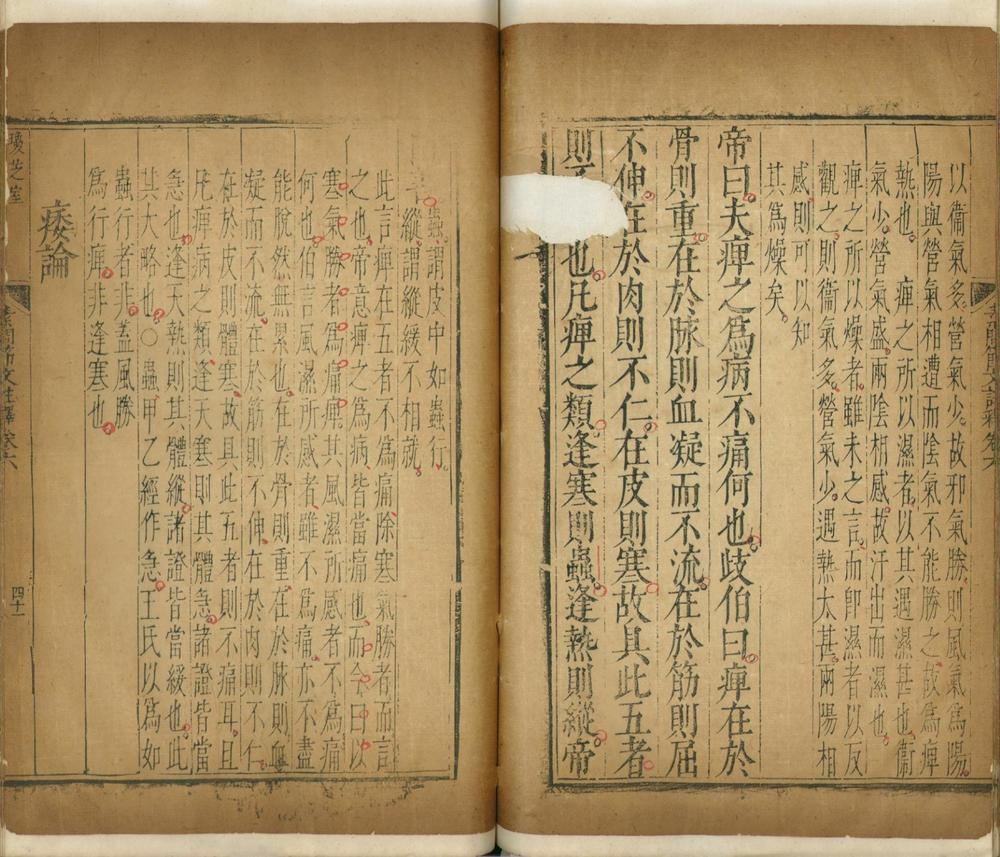 以衞氣多營氣少故邪氣勝則風氣爲陽
陽與營氣相遭而陰氣不能勝之故爲痺
熱也　痺之所以濕者以其遇濕甚也衞
氣少營氣盛兩陰相感故汗出而濕也
痺之所以燥者雖未之言而卽濕者以反
觀之則衞氣多營氣少遇熱太甚兩陽相
感則可以知
其爲燥矣
帝曰夫痺之爲病不痛何也歧伯曰痺在於
骨則重在於脉則血凝而不流在於筋則屈
不伸在於肉則不仁在皮則寒故具此五者
則也凡痺之類逢寒則蟲逢熱則縱帝
蟲謂皮中如蟲行
縱謂縱緩不相就
此言痺在五者不爲痛除寒氣勝者而言
之也帝意痺之爲病皆當痛也而今曰以
寒氣勝者爲痛痺其風濕所感者不爲痛
何也伯言風濕所感者雖不爲痛亦不盡
能脫然無累也在於骨則重在於脉則血
凝而不流在於筋則不伸在於肉則不仁
在於皮則體寒故具此五者則不痛耳且
凡痺病之類逢天寒則其體急諸證皆當
急也逢天熱則其體縱諸證皆當緩也此
其大略也〇蟲甲乙經作急王氏以爲如
蟲行者非蓋風勝
爲行痺非逢寒也
痿論
瓊芝室
四十一